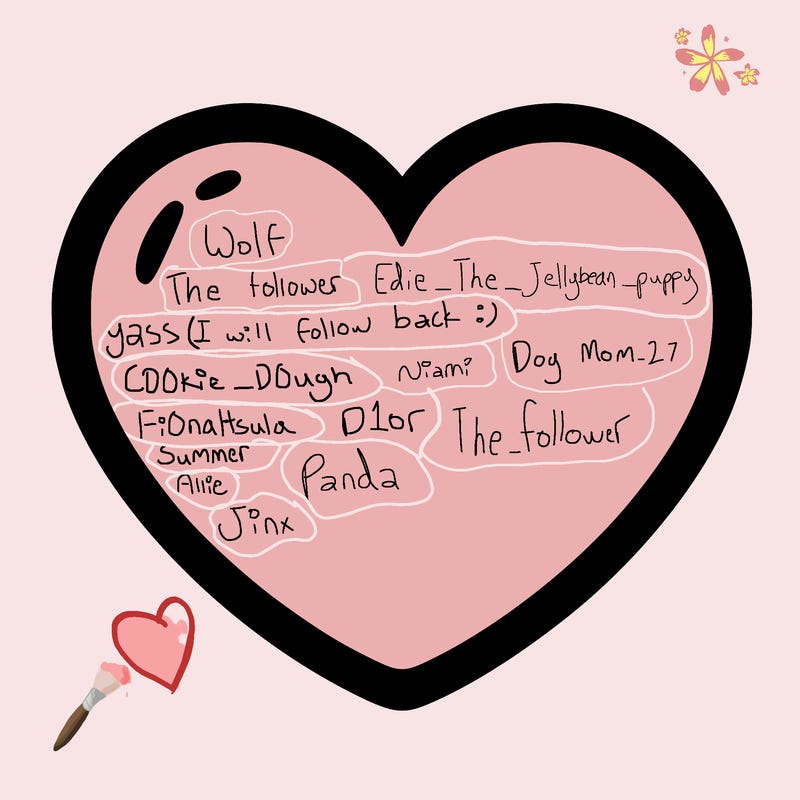 Wolf
The follower Edie_The_Jellybean_puppy
yass (I will follow back :)
COOkie_DOugh Niami Dog Mom_27
FiOnaHsula D1or The_follower
Summer
Allie Panda
Jinx